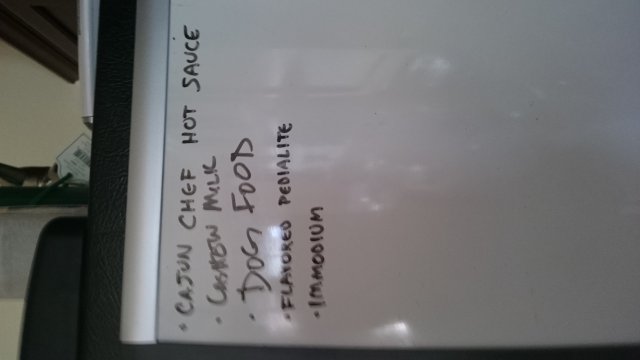 • CAJUN CHEF HOT SAUCE
• CASHEW MILK
• DOG FOOD
• FLAVORED PEDIALITE
• IMMODIUM